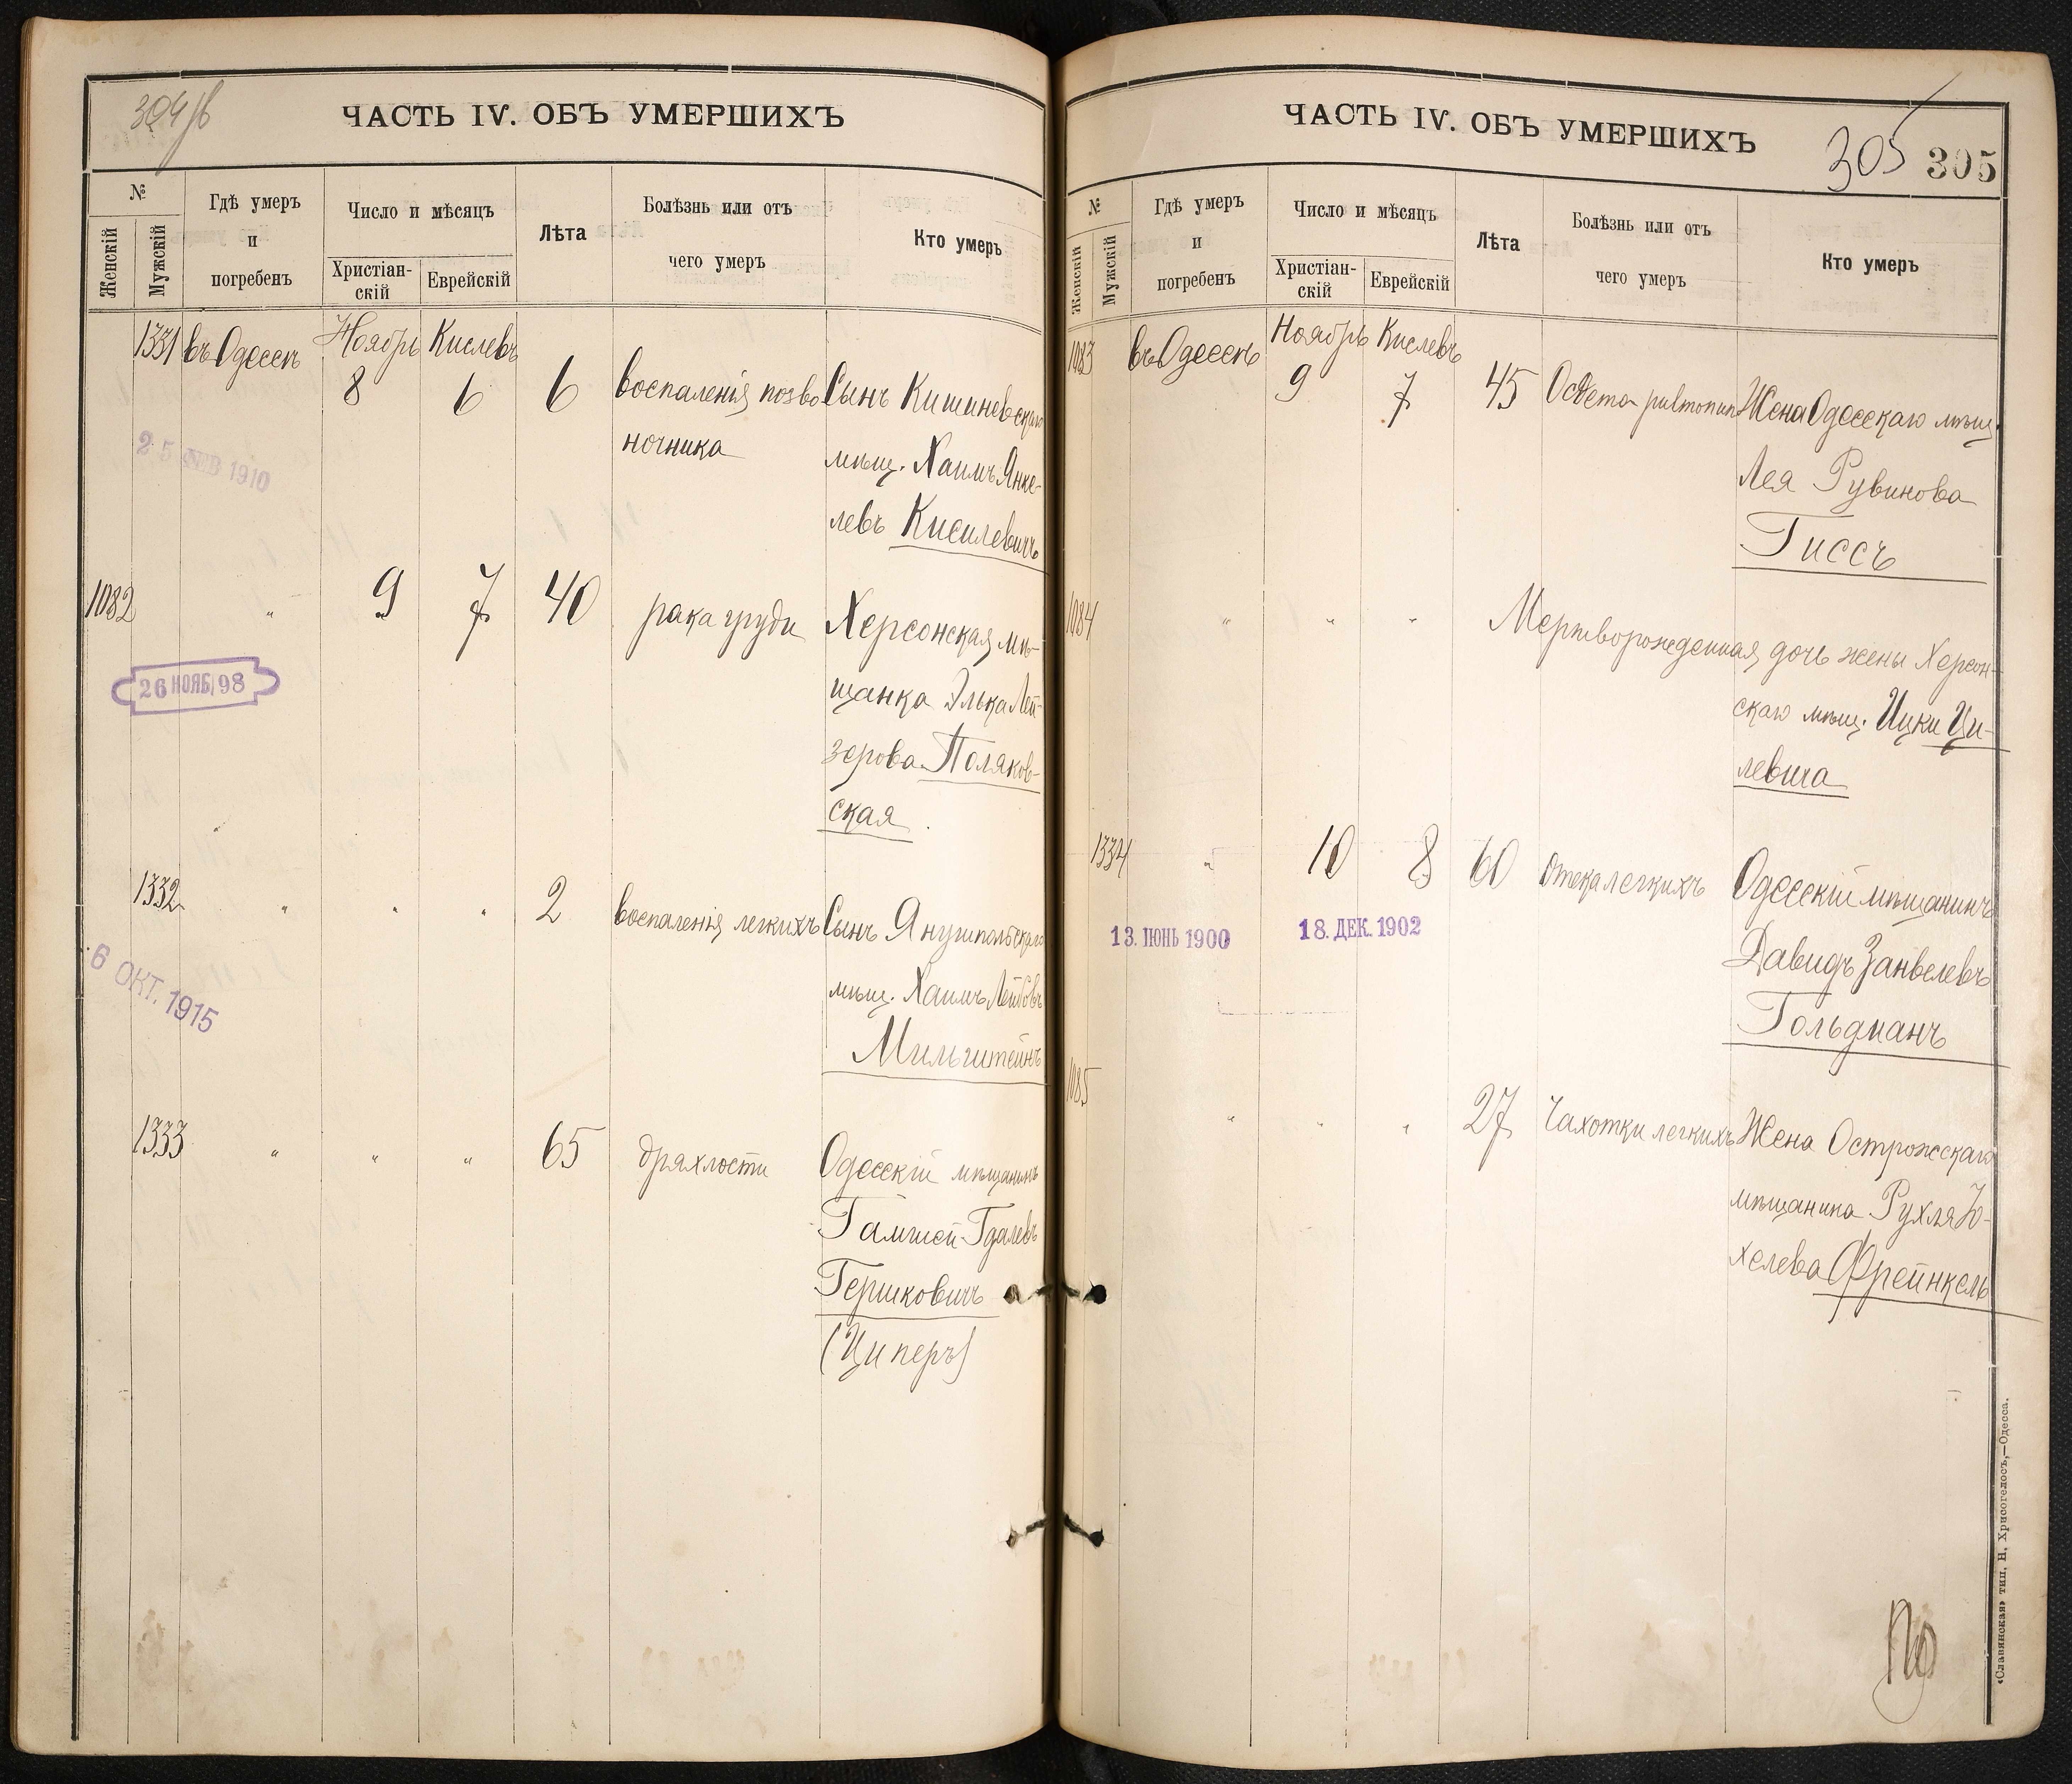 304/в
ЧАСТЬ IV. ОБЪ УМЕРШИХЪ
№
Женскій
Мужскій
Гдѣ умеръ
и
погребенъ
Число и мѣсяцъ
Христіан-
скій
Еврейскій
Лѣта
Болѣзнь или отъ
чего умеръ
Кто умеръ
1331 въ Одессѣ Ноябрь Кислевъ
8 6 6 воспаленія позво Сынъ Кишиневскаго
ночника мѣщ. Хаимъ Янке-
левъ Кисилевичъ
25 ФЕВ 1910
1082 " 9 7 40 рака груди Херсонская мѣ-
щанка Элька Лей-
зерова Поляков-
ская
26 НОЯБ 98
1332 " " " 2 воспаленія легкихъ Сынъ Янушпольскаго
мѣщ. Хаимъ Лейбовъ
Мильштейнъ
6 ОКТ. 1915
1333 " " " 65 дряхлости Одесскій мѣщанинъ
Гамшей Гдалевъ
Гершковичъ
(Циперъ)
ЧАСТЬ IV. ОБЪ УМЕРШИХЪ
305 305
№
Женскій
Мужскій
Гдѣ умеръ
и
погребенъ
Число и мѣсяцъ
Христіан-
скій
Еврейскій
Лѣта
Болѣзнь или отъ
чего умеръ
Кто умеръ
1083 въ Одессѣ Ноябрь Кислевъ
9 7 45 Жена Одесскаго мѣщ.
Лея Рувинова
Гиссъ
1084 " " " Мертворожденная дочь жены Херсон-
скаго мѣщ. Ицки Ци-
левича
1334 " 10 8 60 Отека легкихъ Одесскій мѣщанинъ
Давидъ Занвелевъ
Гольдманъ
13. ІЮНЬ 1900 18. ДЕК. 1902
1085 " " " 27 Чахотки легкихъ Жена Острожскаго
мѣщанина Рухля Іо-
хелева Френкель
«Славянская» тип. Н. Хрисогелосъ,—Одесса.